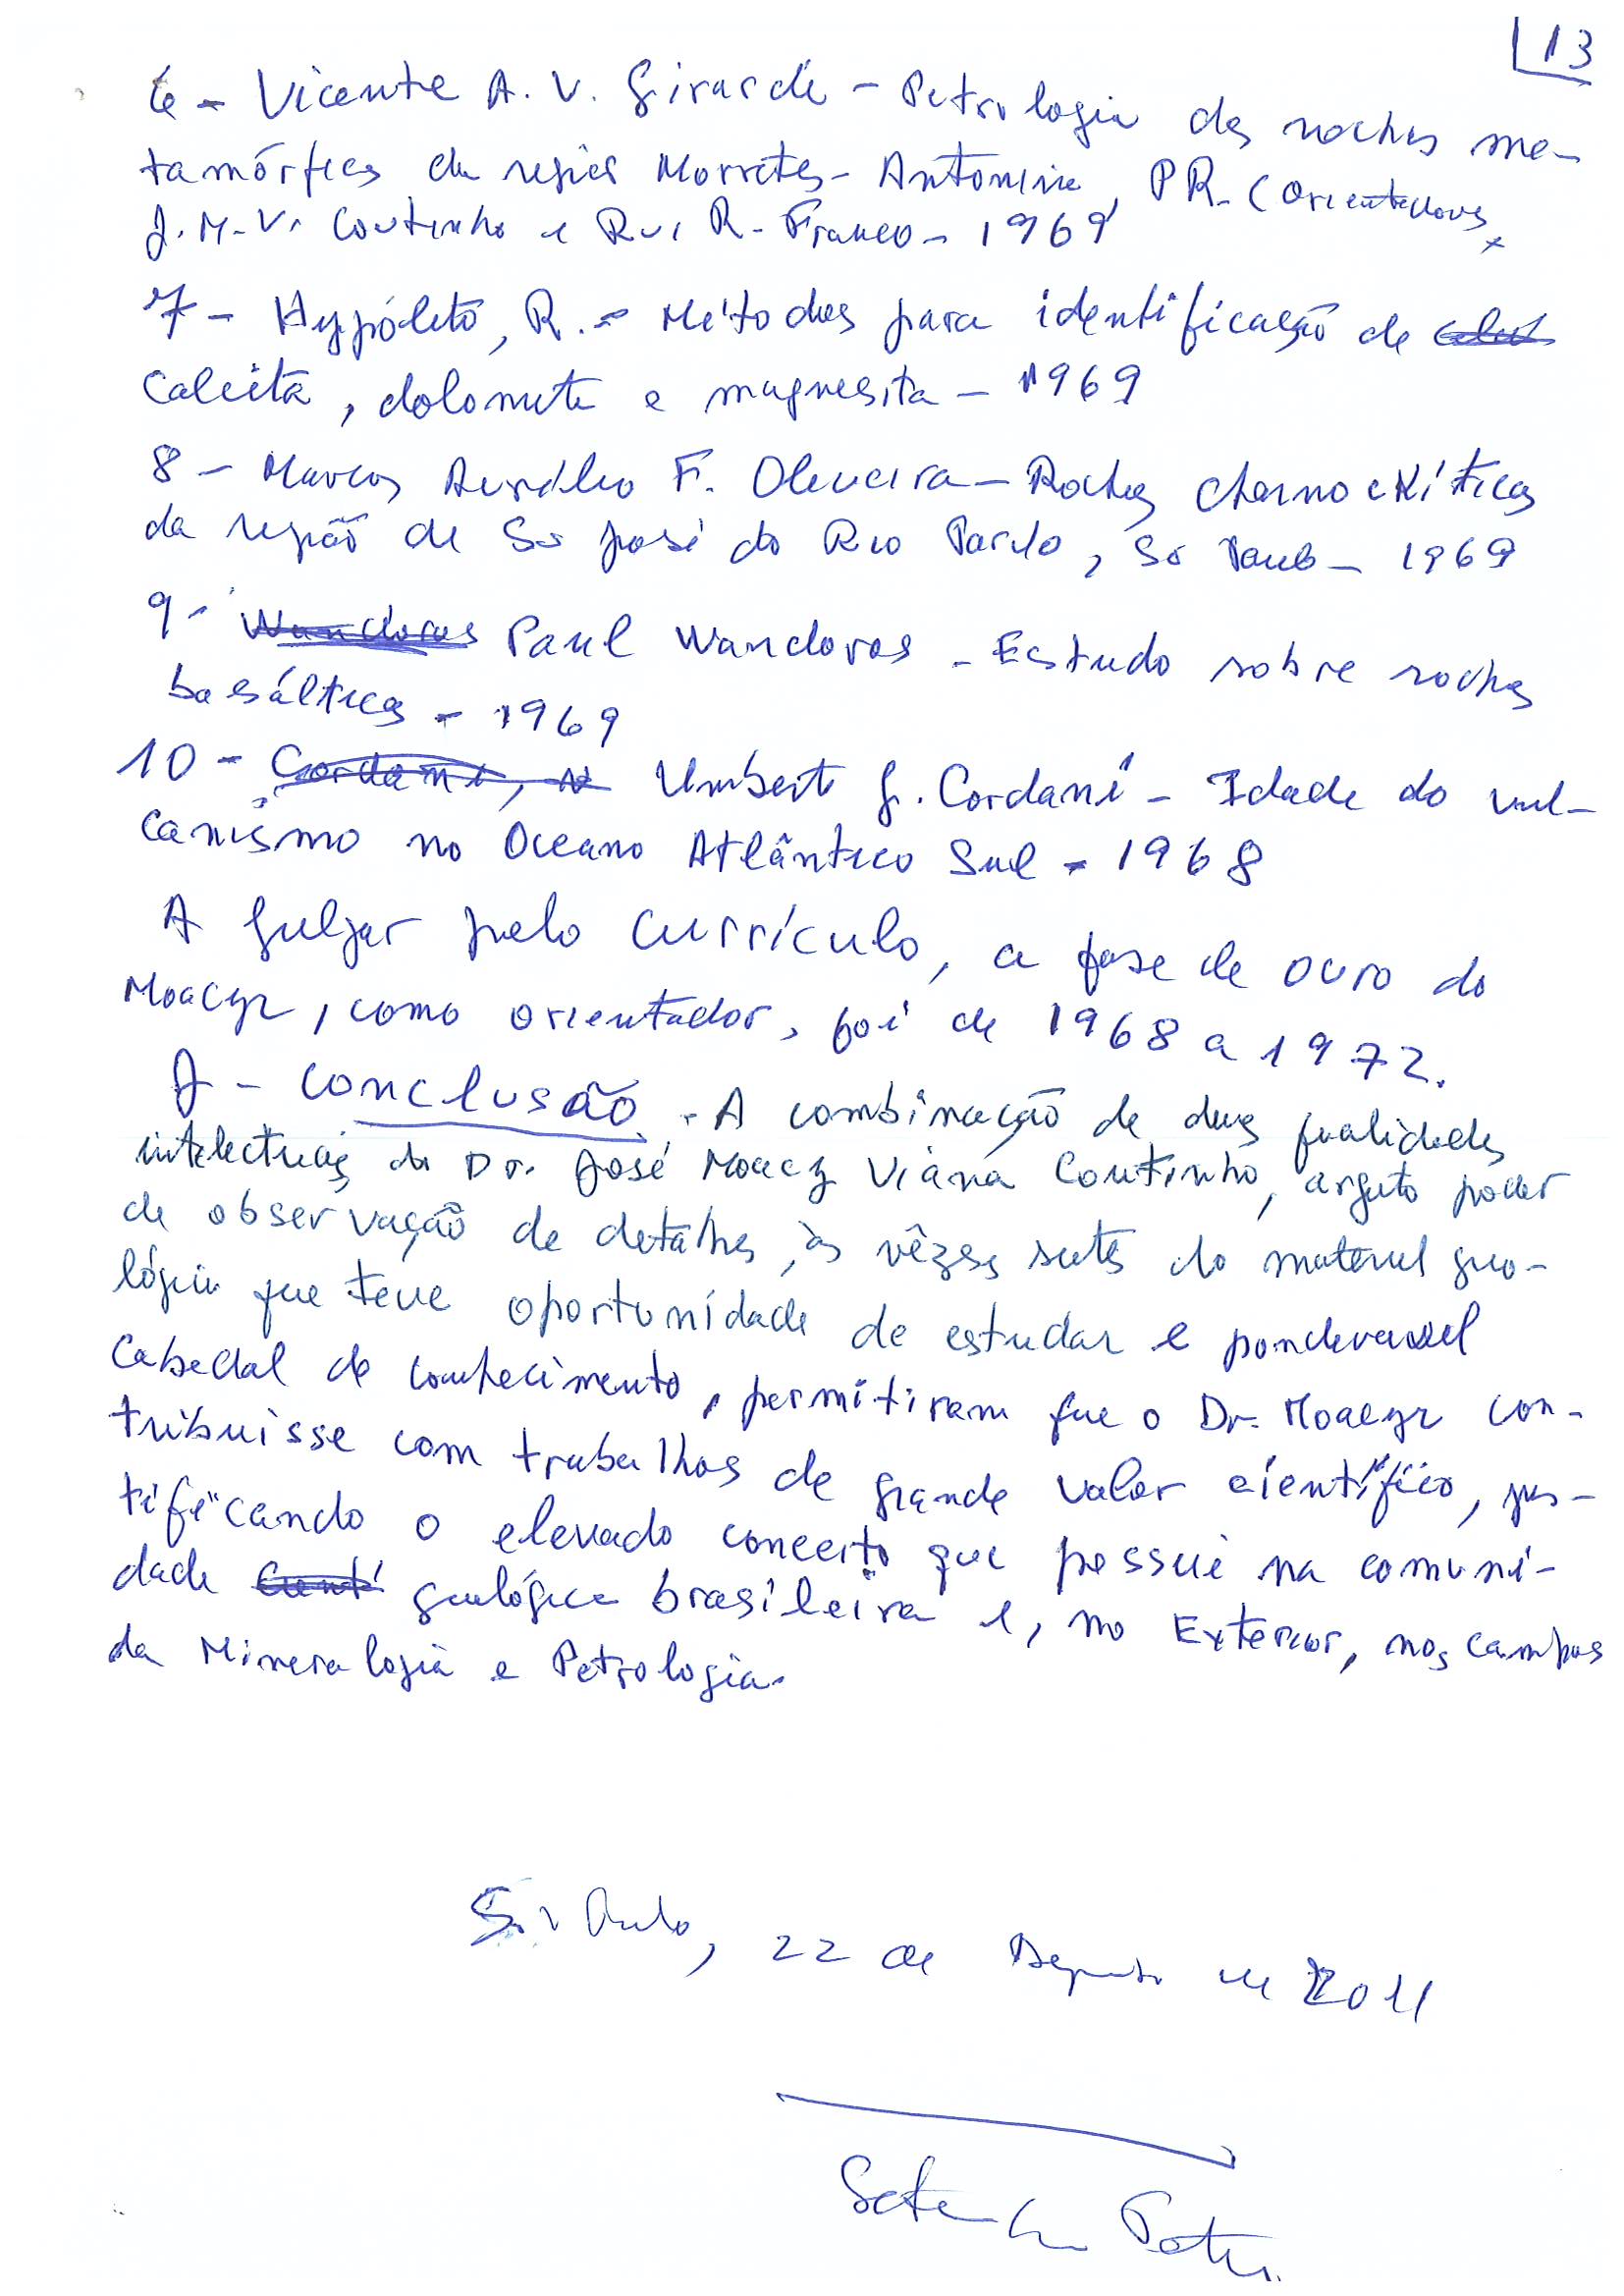 13
6 - Vicente A. V. Girardi - Petrologia das rochas me-
tamórficas da região Morretes - Antonina, PR - (Orientadores,
J. M. V. Coutinho e Rui R. Franco - 1969
7 - Hypólito, R. - Métodos para identificação de
Calcita, dolomita e magnesita - 1969
8 - Marcos Aurélio F. Oliveira - Rochas charnockíticas
da região de São José do Rio Pardo, São Paulo - 1969
9 - Wandoros Paul Wandoros - Estudo sobre rochas
basálticas - 1969
10 - Cordani, U Umberto G. Cordani - Idade do vul-
canismo no Oceano Atlântico Sul - 1968
A julgar pelo currículo, a fase de ouro do
Moacyr, como orientador, foi de 1968 a 1972.
J - Conclusão. - A combinação de duas qualidades
intelectuais do Dr. José Moacyr Viana Coutinho, arguto poder
de observação de detalhes, às vêzes sutis do material geo-
lógico que teve oportunidade de estudar e ponderável
Cabedal de conhecimento, permitiram que o Dr. Moacyr con-
tribuisse com trabalhos de grande valor científico, jus-
tificando o elevado conceito que possui na comuni-
dade Cientí geológica brasileira e, no Exterior, nos campos
da Mineralogia e Petrologia.
São Paulo, 22 de Agosto de 2011
Setembrino Petri